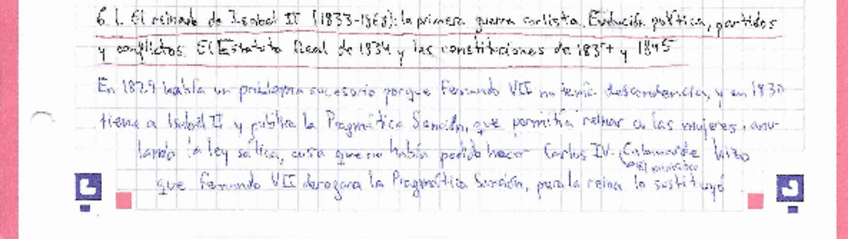 6.1. El reinado de Isabel II (1833-1868): la primera guerra carlista. Evolución política, partidos
y conflictos. El Estatuto Real de 1834 y las constituciones de 1837 y 1845
En 1829 había un problema sucesorio porque Fernando VII no tenía descendencia, y en 1830
tiene a Isabel II y publica la Pragmática Sanción, que permitía reinar a las mujeres, anu-
lando la ley sálica, cosa que no había podido hacer Carlos IV. Calomarde hizo
El ministro
que Fernando VII derogara la Pragmática Sanción, pero la reina lo sustituyó